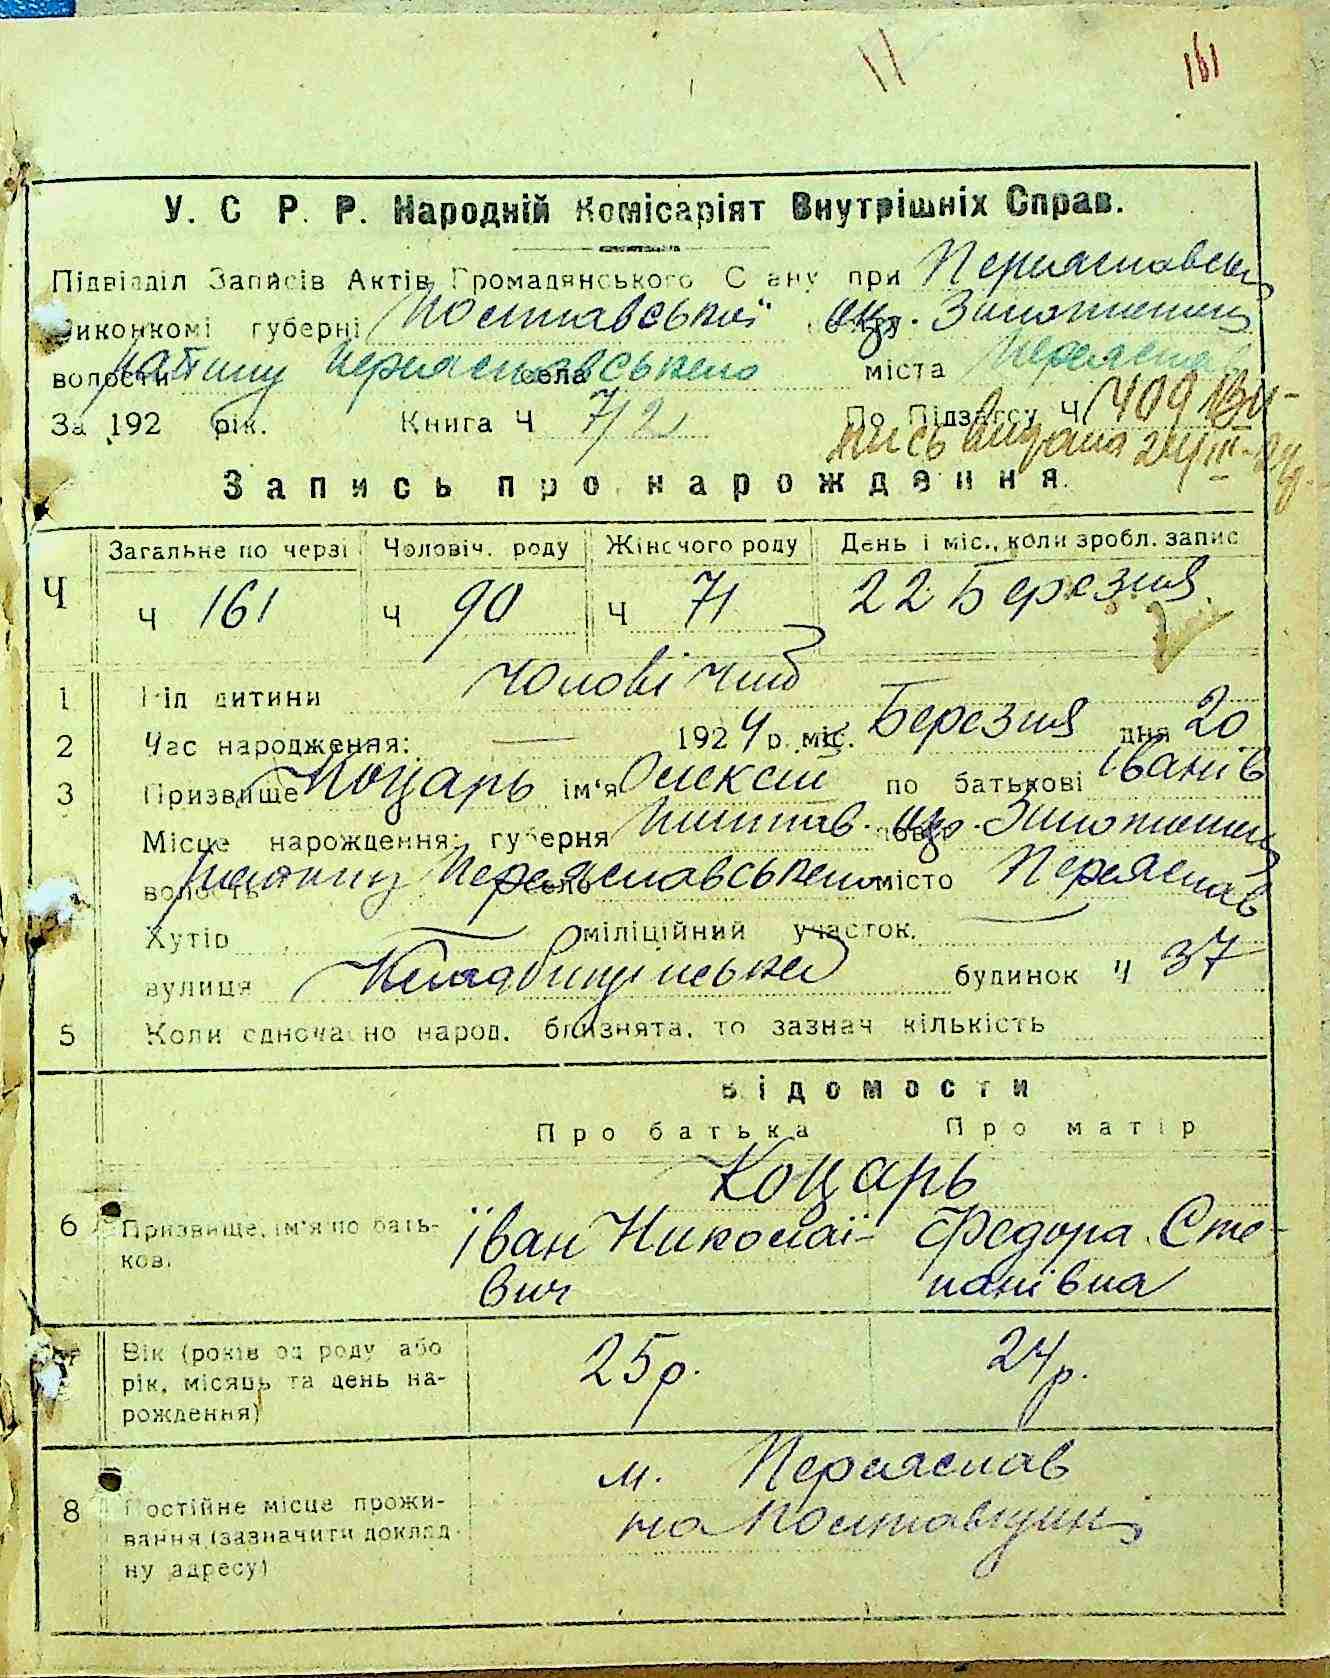 11 161
У. С Р. Р. Народній Комісаріят Внутрішніх Справ.
Підвідділ Записів Актів Громадянського Стану при Переяславськ
Виконкомі губерні Полтавської окр. Золотонош
волости Району Переяславського села міста Переяслав
За 192 рік. Книга Ч 7/2 По Підзагсу Ч 409 Ви-
пись видана 24/III-24р.
Запись про нарождення.
Загальне по черзі Чоловіч. роду Жіночого роду День і міс., коли зробл. запис
Ч Ч 161 Ч 90 Ч 71 22 Березня
1 Рід дитини чоловічий
2 Час народження: — 1924 р. міс. Березня дня 20
3 Призвище Коцарь ім'я Олексій по батькові Іванів
Місце нарождення: губерня Полтав. окр. Золотонош
волость Району Переяславського село місто Переяслав
Хутір міліційний участок.
вулиця будинок Ч 37
5 Коли одночасно народ. близнята, то зазнач кількість
Відомости
Про батька Про матір
Коцарь
6 Призвище, ім'я по бать- Іван Николаї- Федора Сте-
кові вич панівна
Вік (років од роду або 25 р. 24 р.
рік, місяць та день на-
рождення)
м. Переяслав
8 Постійне місце прожи- на Полтавщині
вання (зазначити доклад-
ну адресу)